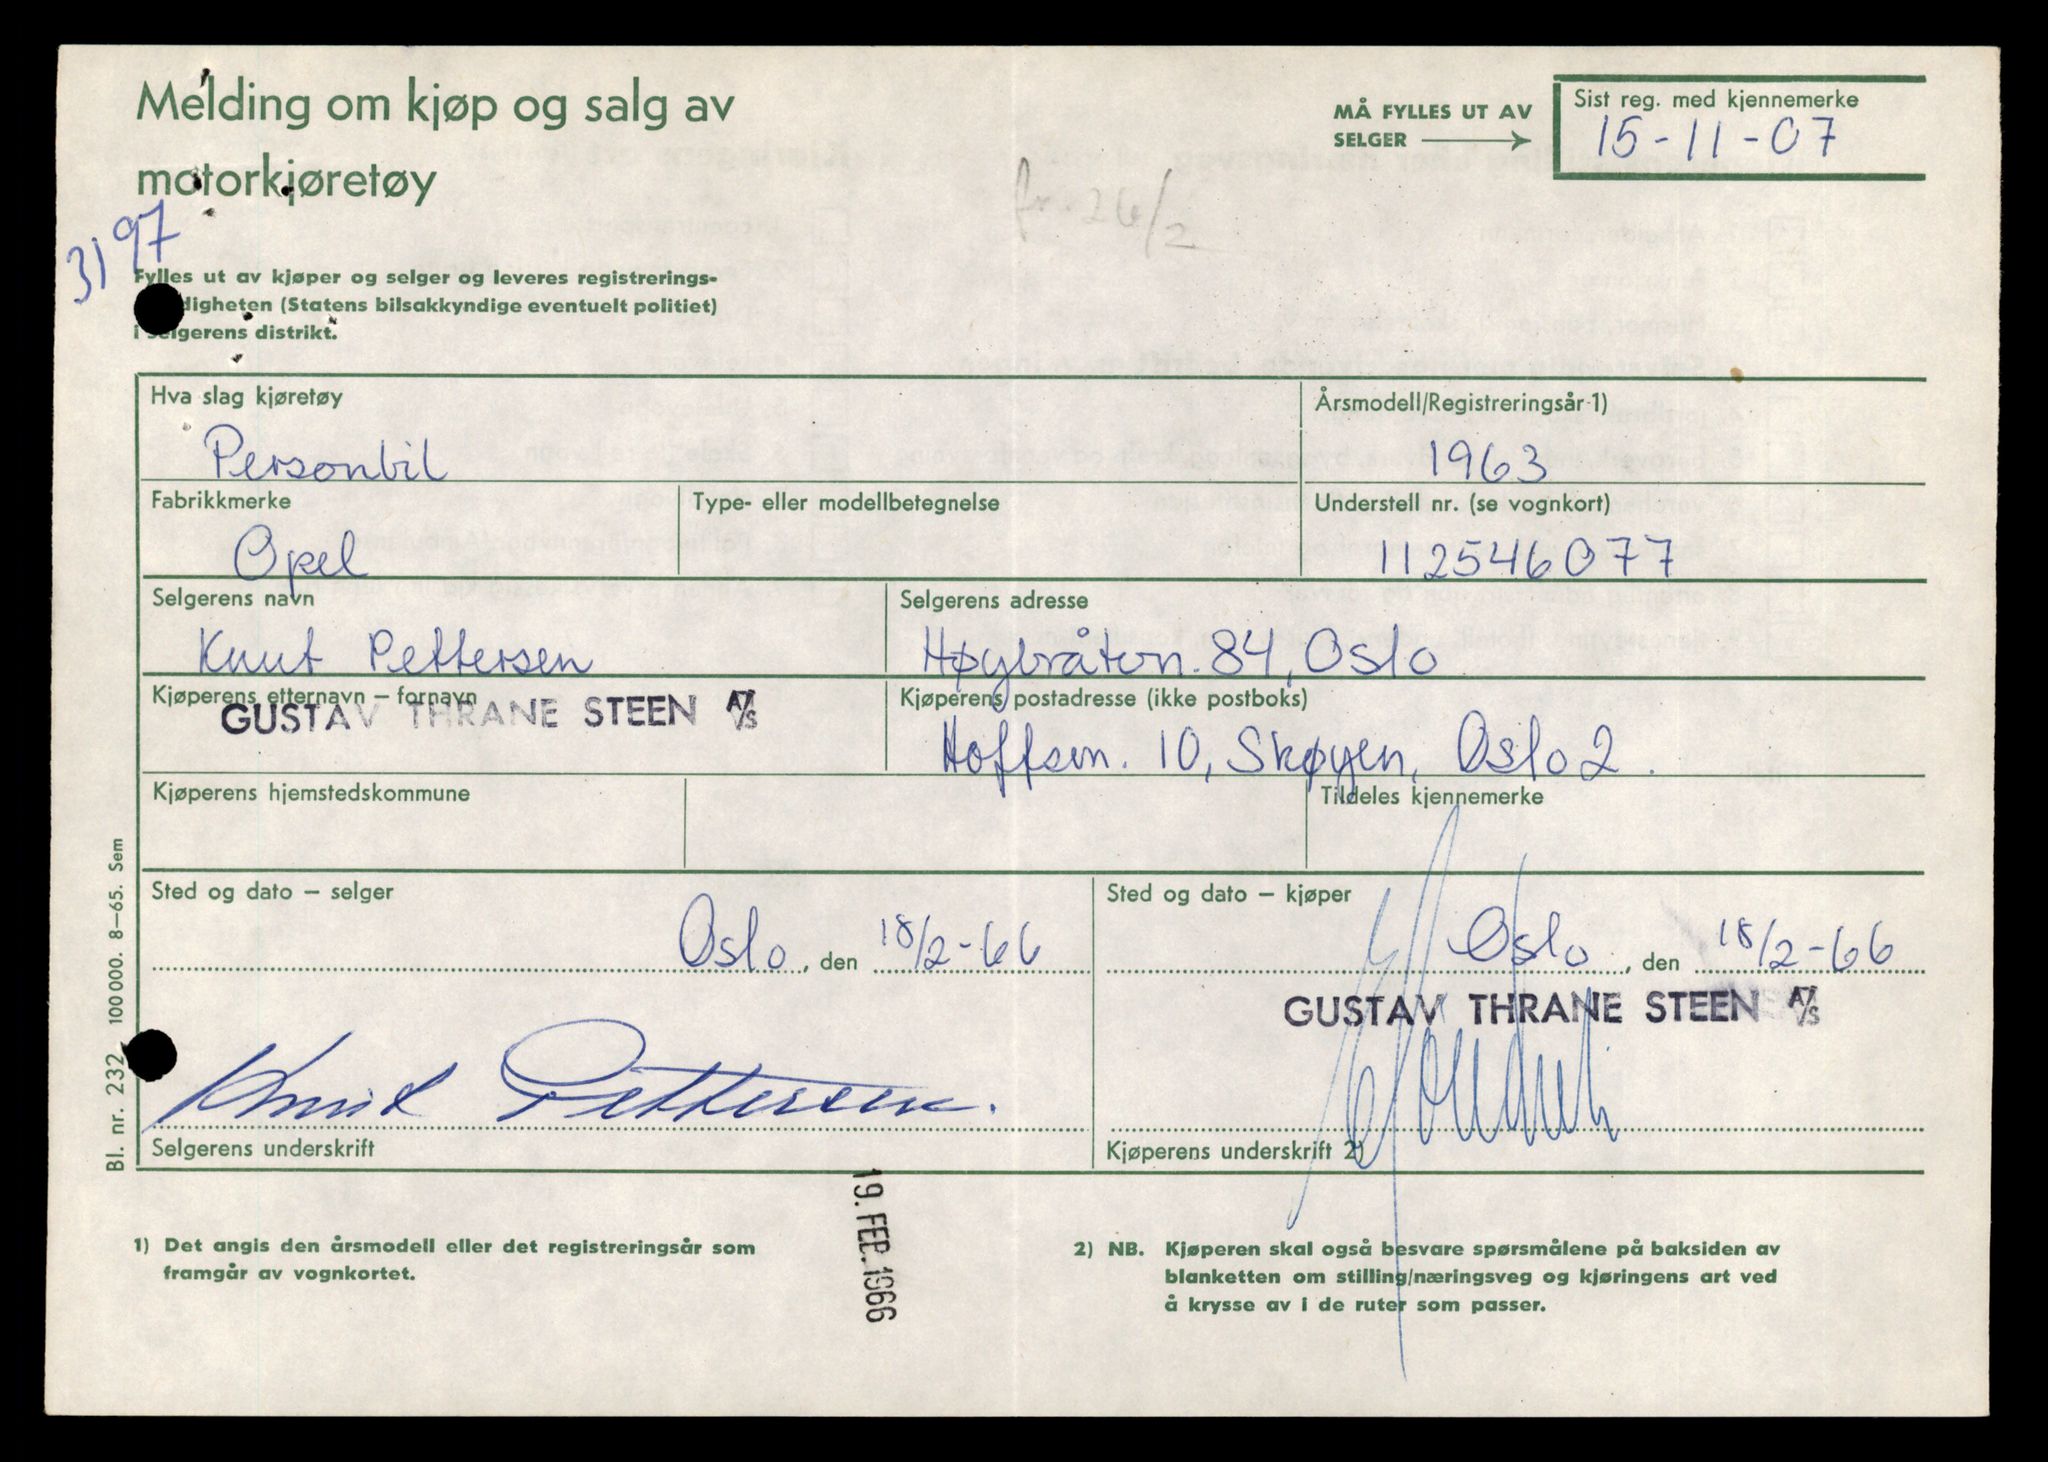 Melding om kjøp og salg av
motorkjøretøy
MÅ FYLLES UT AV
SELGER
Sist reg. med kjennemerke
15-11-07
fr. 26/2
3197
Fylles ut av kjøper og selger og leveres registrerings-
digheten (Statens bilsakkyndige eventuelt politiet)
i selgerens distrikt.
Hva slag kjøretøy
Personbil
Årsmodell/Registreringsår 1)
1963
Fabrikkmerke
Opel
Type- eller modellbetegnelse
Understell nr. (se vognkort)
112546077
Selgerens navn
Knut Pettersen
Selgerens adresse
Høybråtvn. 84, Oslo
Kjøperens etternavn – fornavn
GUSTAV THRANE STEEN A/S
Kjøperens postadresse (ikke postboks)
Hoffsvn. 10, Skøyen, Oslo 2.
Kjøperens hjemstedskommune
Tildeles kjennemerke
Sted og dato – selger
Oslo, den 18/2-66
Sted og dato – kjøper
Oslo, den 18/2-66
GUSTAV THRANE STEEN A/S
Knut Pettersen.
Selgerens underskrift
Kjøperens underskrift 2)
Bl. nr. 232 100 000. 8–65. Sem
19. FEB. 1966
1) Det angis den årsmodell eller det registreringsår som
framgår av vognkortet.
2) NB. Kjøperen skal også besvare spørsmålene på baksiden av
blanketten om stilling/næringsveg og kjøringens art ved
å krysse av i de ruter som passer.